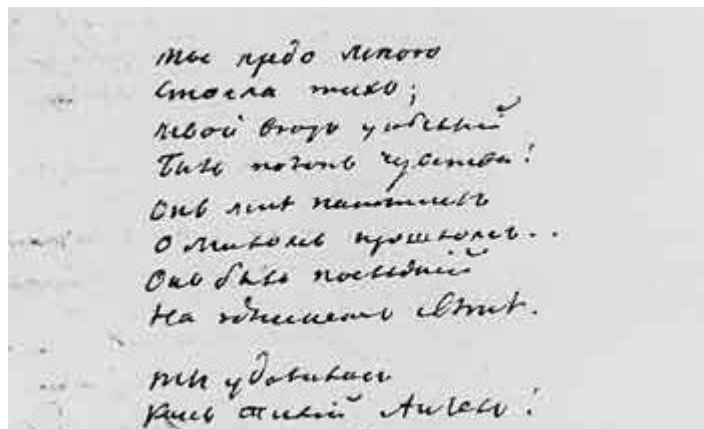 Ты предо мною
Стояла тихо;
Твой взоръ унылый
Былъ полонъ чувства!
Онъ мнѣ напомнилъ
О миломъ прошломъ..
Онъ былъ послѣднiй
На здешнемъ свѣтѣ.
Ты удалилась
Какъ тихiй Ангелъ!